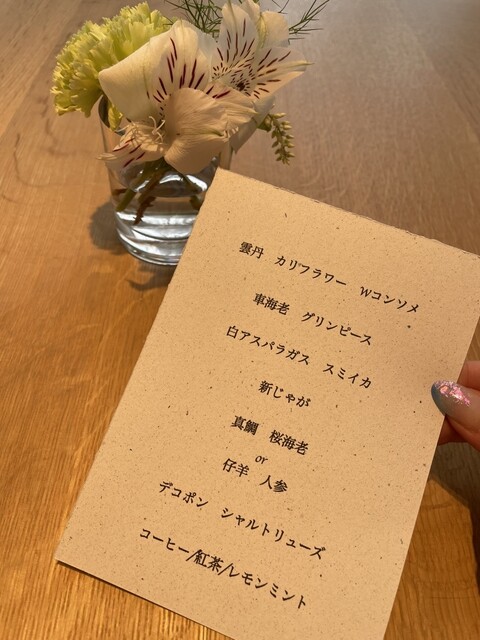 雲丹　カリフラワー　Wコンソメ
車海老　グリンピース
白アスパラガス　スミイカ
新じゃが
真鯛　桜海老
or
仔羊　人参
デコポン　シャルトリューズ
コーヒー/紅茶/レモンミント